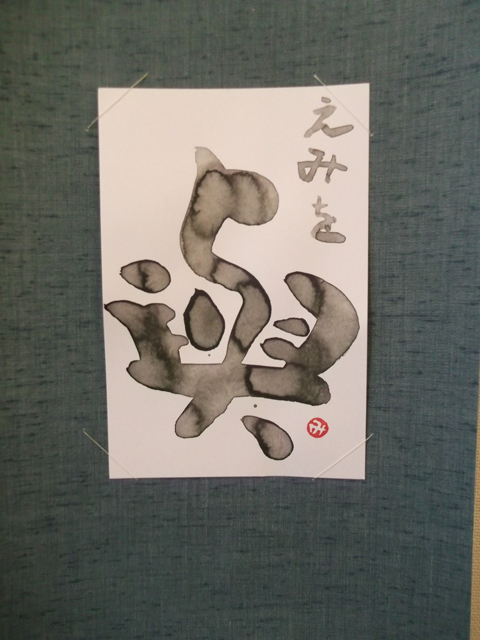 えみを
與
み